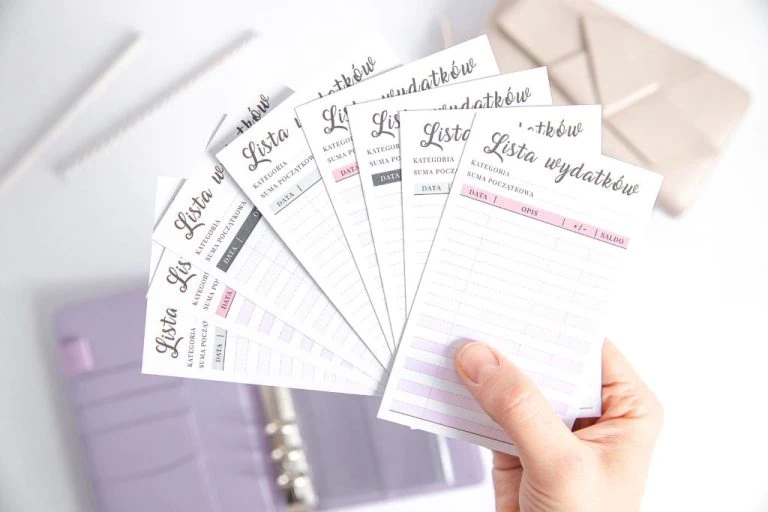 Lista wydatków
KATEGORIA
SUMA POCZĄTKOWA
DATA | OPIS | +/- | SALDO
Lista
wydatków
KATEGORIA
SUMA POCZĄTKOWA
DATA
Lista wydatków
KATEGORIA
SUMA
DATA
Lista wydatków
KATEGORIA
SUMA
DATA
Lista wydatków
KATEGORIA
SUMA POCZĄTKOWA
DATA
Lista
KATEGORIA
SUMA POCZĄTKOWA
DATA
Lis
KATEGORIA
SUMA
DATA
Lista
KATEGORIA
SUMA POCZĄTKOWA
DATA